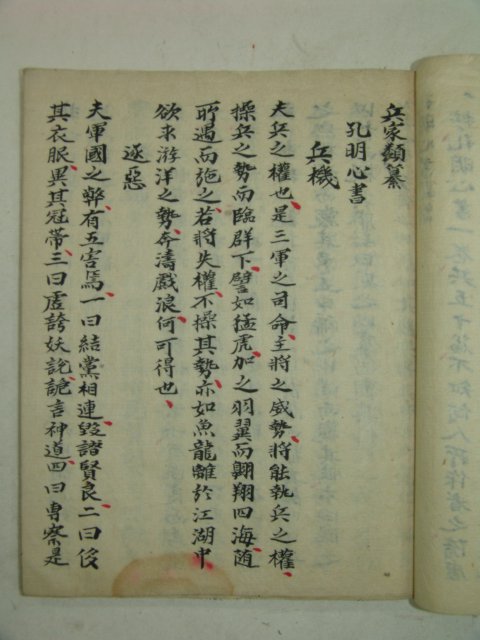 兵家類纂
孔明心書
兵機
夫兵之權也是三軍之司命主將之威勢將能執兵之權
操兵之勢而臨群下譬如猛虎加之羽翼而翱翔四海随
所遇而施之若將失權不操其勢亦如魚龍離於江湖中
欲求游洋之勢奔濤戲浪何可得也
逐惡
夫軍國之弊有五害焉一曰結黨相連毀譖賢良二曰侈
其衣服異其冠帶三曰虛誇妖訛詭言神道四曰專察是